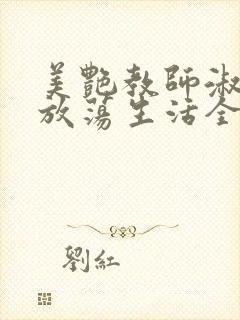 美艷教師淑
放蕩生活全
劉紅